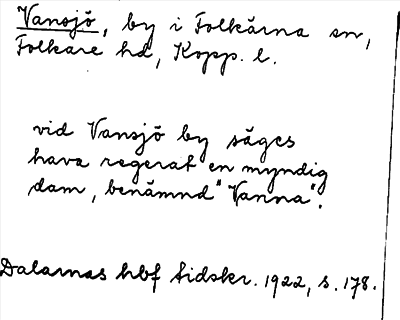 Vansjö, by i Folkärna sn,
Folkare hd, Kopp. l.
vid Vansjö by säges
hava regerat en myndig
dam, benämnd "Vanna".
Dalarnas hbf tidskr. 1922, s. 178.